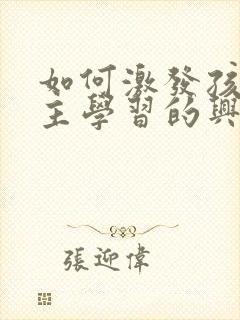 如何激發孩
主學習的興
張迎偉